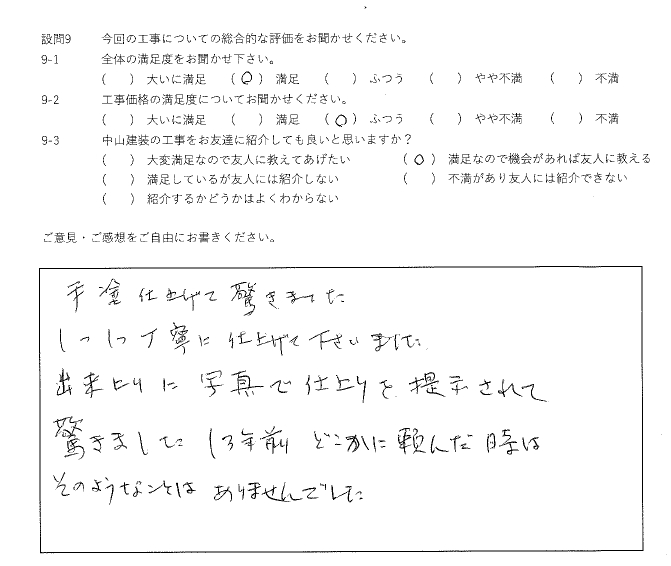 設問9 今回の工事についての総合的な評価をお聞かせください。
9-1 全体の満足度をお聞かせ下さい。
( ) 大いに満足 (○) 満足 ( ) ふつう ( ) やや不満 ( ) 不満
9-2 工事価格の満足度についてお聞かせください。
( ) 大いに満足 ( ) 満足 (○) ふつう ( ) やや不満 ( ) 不満
9-3 中山建装の工事をお友達に紹介しても良いと思いますか？
( ) 大変満足なので友人に教えてあげたい (○) 満足なので機会があれば友人に教える
( ) 満足しているが友人には紹介しない ( ) 不満があり友人には紹介できない
( ) 紹介するかどうかはよくわからない
ご意見・ご感想をご自由にお書きください。
手塗仕上げて驚きました
1つ1つ丁寧に仕上げて下さいました
出来上りに写真で仕上りを提示されて
驚きました 13年前どこかに頼んだ時は
そのようなことはありませんでした